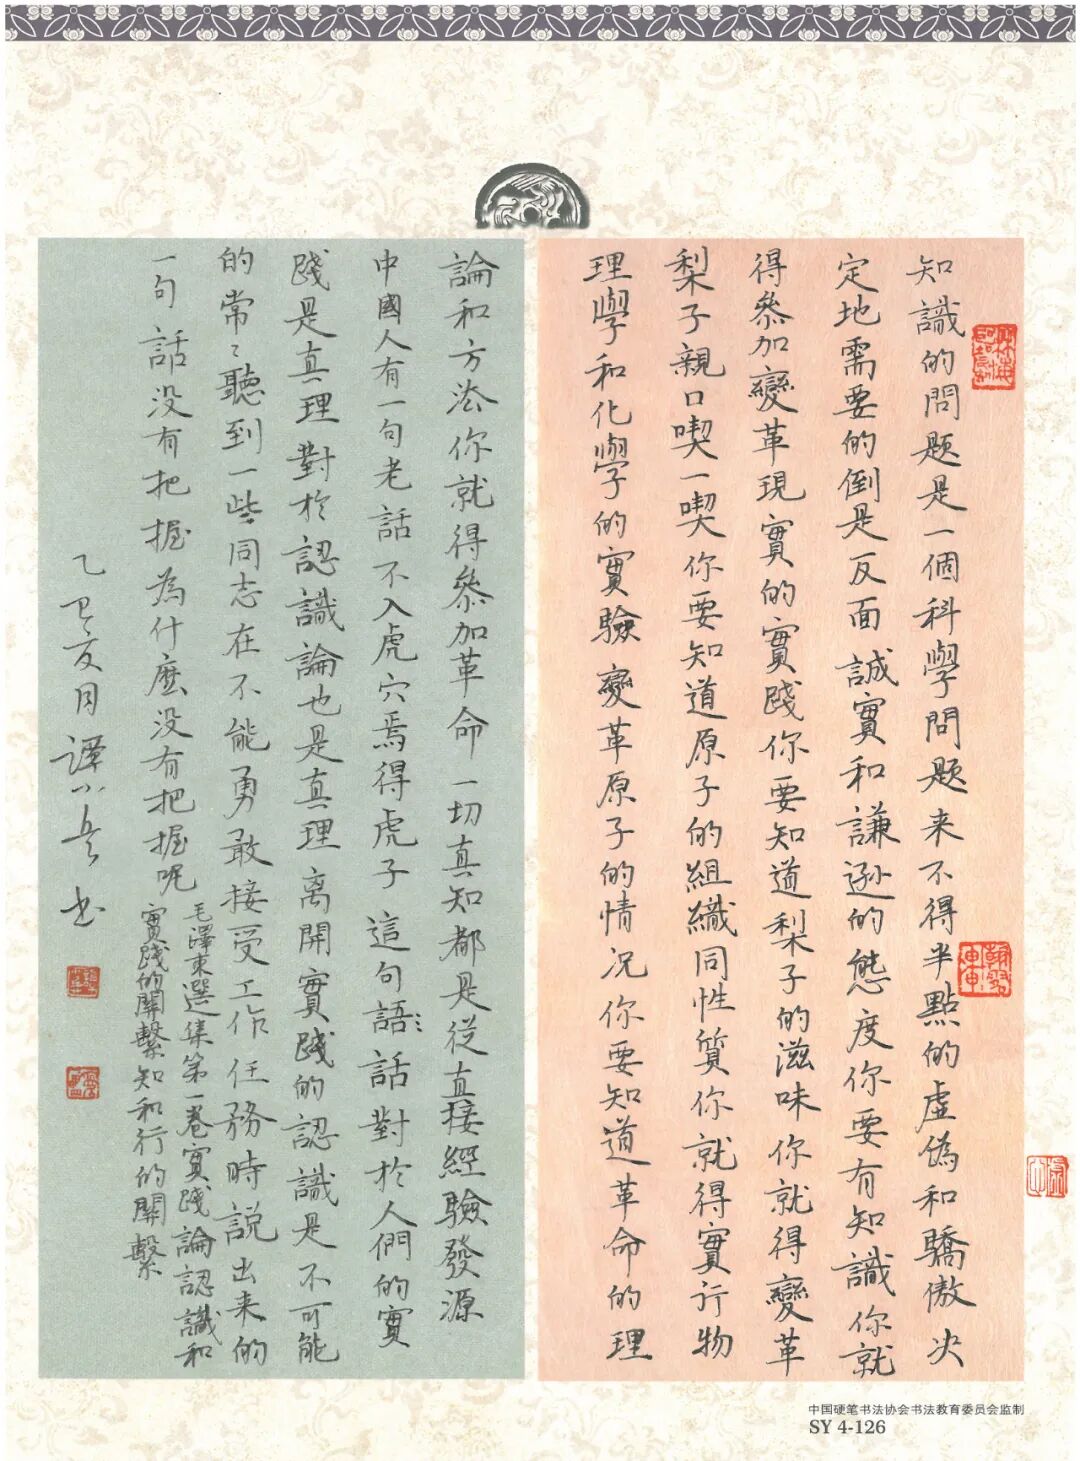 知識的問题是一個科學問题来不得半點的虚偽和驕傲决
定地需要的倒是反面誠實和謙遜的態度你要有知識你就
得參加變革現實的實践你要知道梨子的滋味你就得變革
梨子親口喫一喫你要知道原子的組織同性質你就得實行物
理學和化學的實驗變革原子的情况你要知道革命的理
論和方法你就得參加革命一切真知都是從直接經驗發源
中國人有一句老話不入虎穴焉得虎子這句語話對於人們的實
践是真理對於認識論也是真理离開實践的認識是不可能
的常〻聽到一些同志在不能勇敢接受工作任務時説出来的
一句話没有把握為什麼没有把握呢
毛澤東選集第一卷實践論認識和
實践的關繫知和行的關繫
乙巳夏月譚小兵书
中国硬笔书法协会书法教育委员会监制
SY 4-126